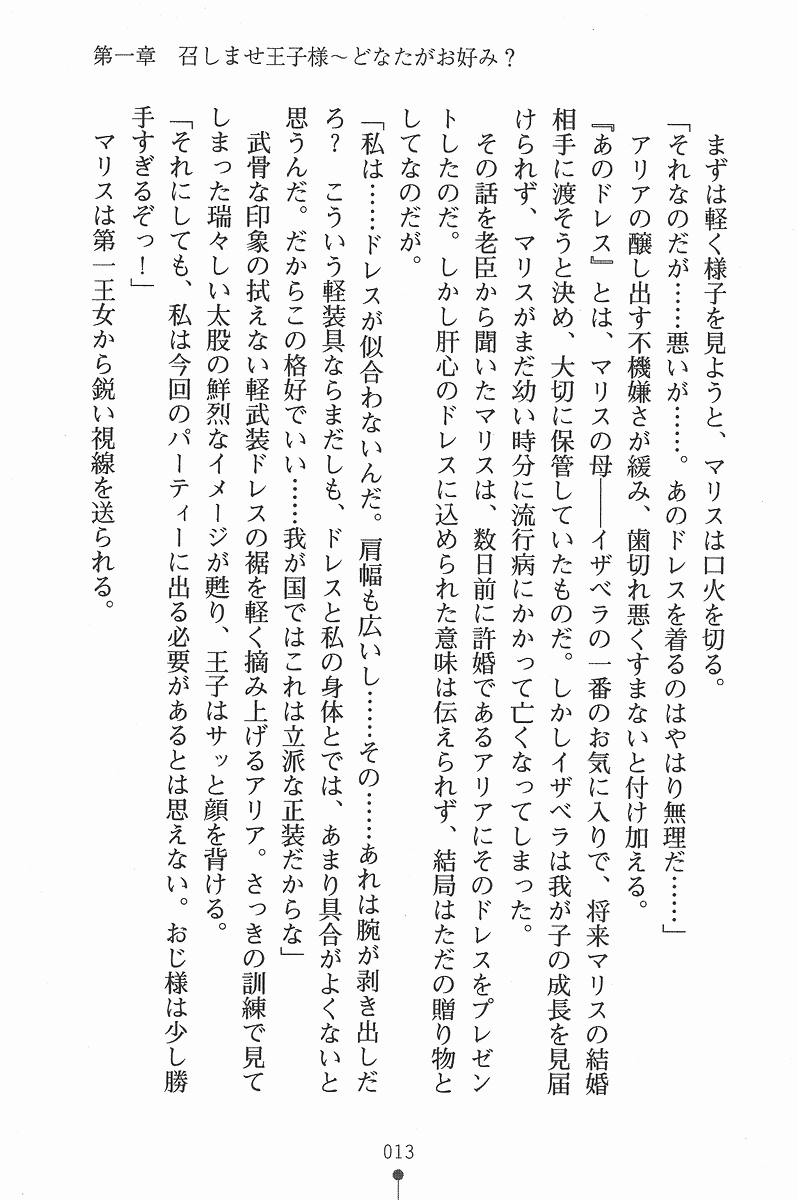 第一章　召しませ王子様～どなたがお好み？
　まずは軽く様子を見ようと、マリスは口火を切る。
「それなのだが……悪いが……。あのドレスを着るのはやはり無理だ……」
　アリアの醸し出す不機嫌さが緩み、歯切れ悪くすまないと付け加える。
『あのドレス』とは、マリスの母――イザベラの一番のお気に入りで、将来マリスの結婚
相手に渡そうと決め、大切に保管していたものだ。しかしイザベラは我が子の成長を見届
けられず、マリスがまだ幼い時分に流行病にかかって亡くなってしまった。
　その話を老臣から聞いたマリスは、数日前に許婚であるアリアにそのドレスをプレゼン
トしたのだ。しかし肝心のドレスに込められた意味は伝えられず、結局はただの贈り物と
してなのだが。
「私は……ドレスが似合わないんだ。肩幅も広いし……その……あれは腕が剥き出しだ
ろ？　こういう軽装具ならまだしも、ドレスと私の身体とでは、あまり具合がよくないと
思うんだ。だからこの格好でいい……我が国ではこれは立派な正装だからな」
　武骨な印象の拭えない軽武装ドレスの裾を軽く摘み上げるアリア。さっきの訓練で見て
しまった瑞々しい太股の鮮烈なイメージが甦り、王子はサッと顔を背ける。
「それにしても、私は今回のパーティーに出る必要があるとは思えない。おじ様は少し勝
手すぎるぞっ！」
　マリスは第一王女から鋭い視線を送られる。
013